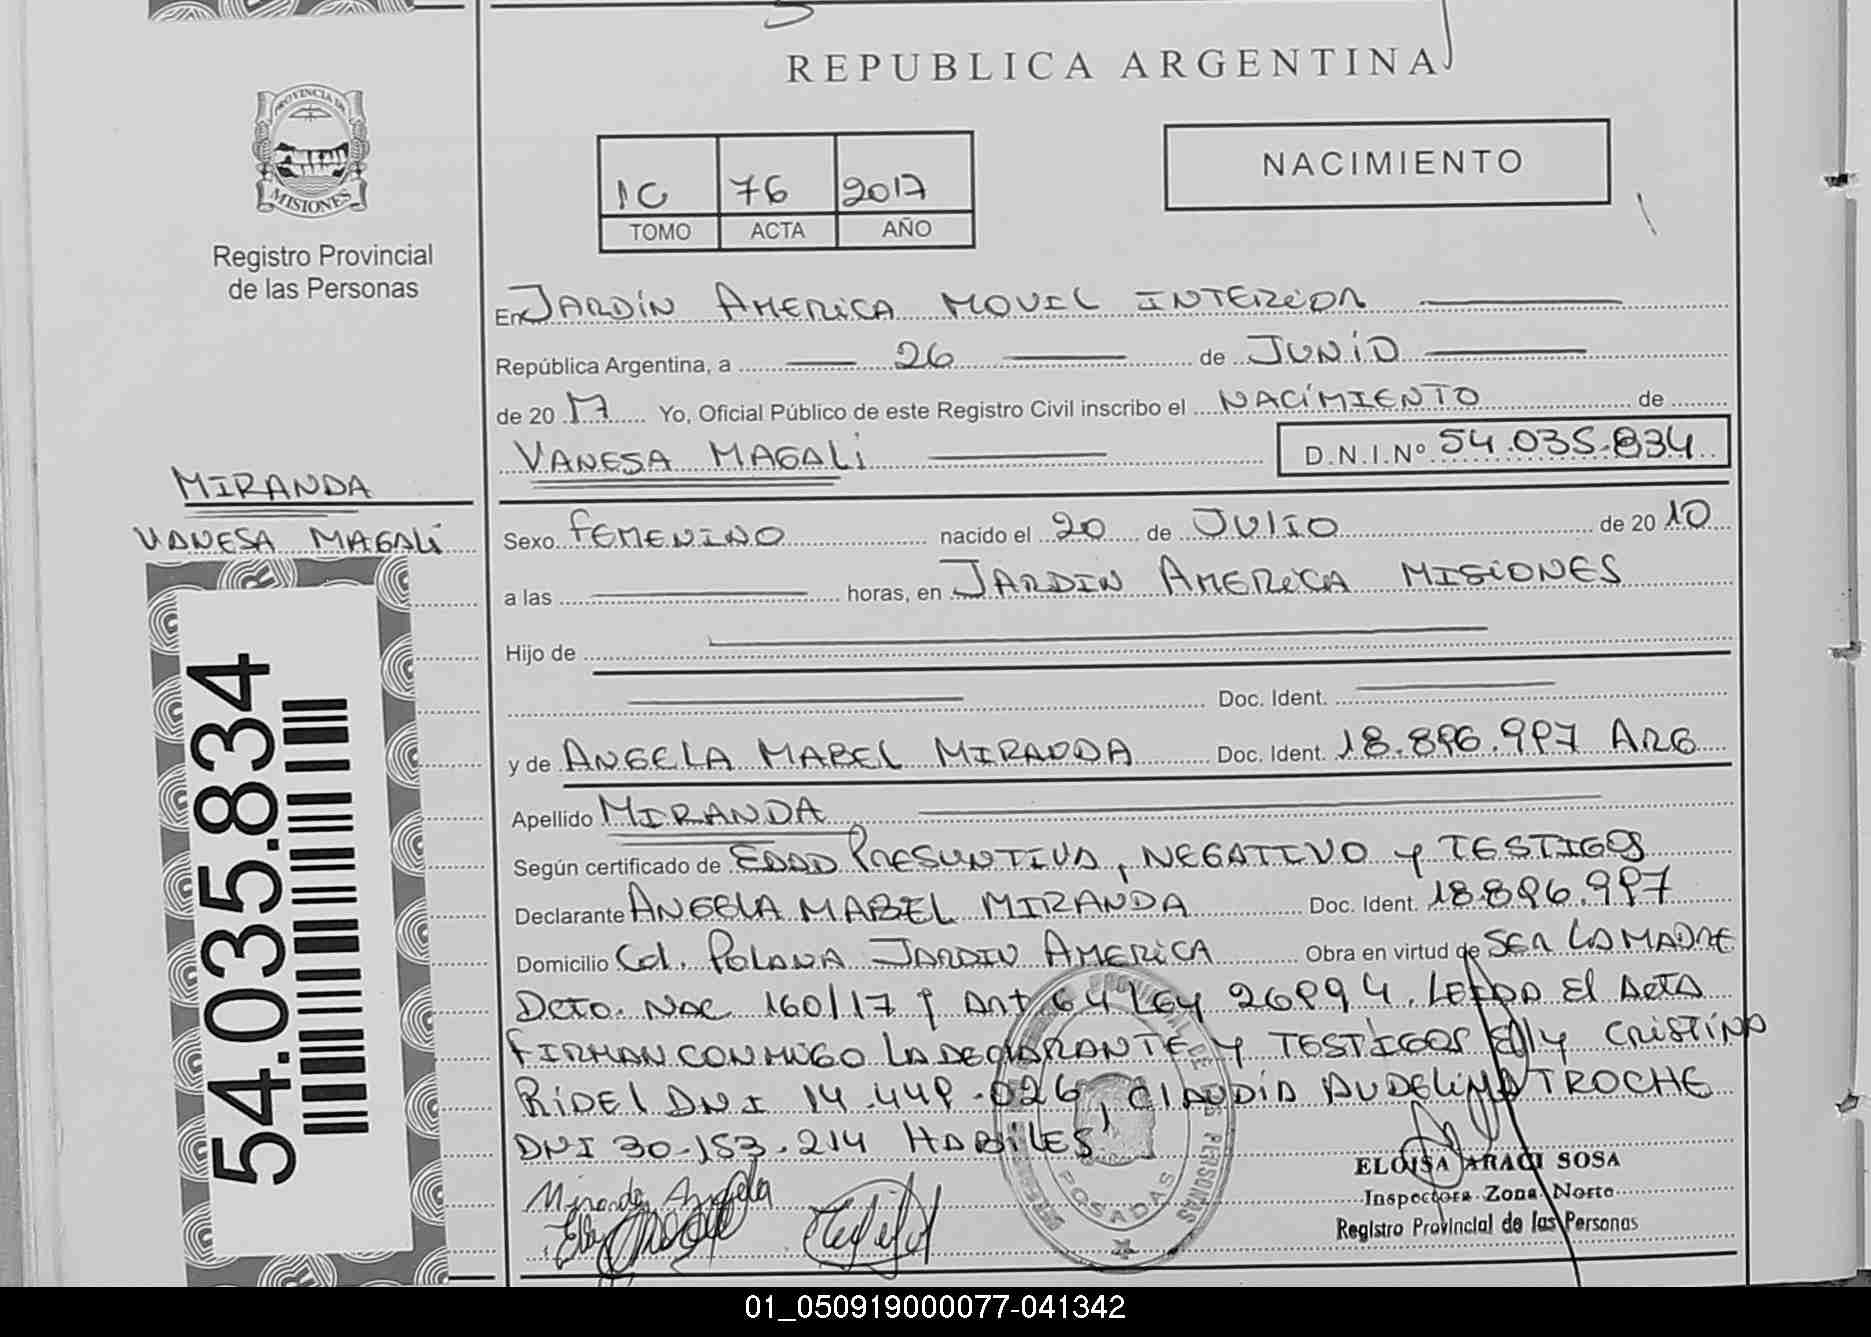 REPUBLICA ARGENTINA
PROVINCIA DE
MISIONES
Registro Provincial
de las Personas
1C 76 2017
TOMO ACTA AÑO
NACIMIENTO
En JARDÍN AMERICA MOVIL INTERIOR
República Argentina, a 26 de JUNIO
de 20 17 Yo, Oficial Público de este Registro Civil inscribo el NACIMIENTO de
VANESA MAGALI D.N.I.Nº 54.035.834
MIRANDA
VANESA MAGALÍ
54.035.834
Sexo FEMENINO nacido el 20 de JULIO de 20 10
a las horas, en JARDIN AMERICA MISIONES
Hijo de
Doc. Ident.
y de ANGELA MABEL MIRANDA Doc. Ident. 18.896.997 ARG
Apellido MIRANDA
Según certificado de EDAD PRESUNTIVA, NEGATIVO y TESTIGOS
Declarante ANGELA MABEL MIRANDA Doc. Ident. 18.896.997
Domicilio Col. POLANA JARDIN AMERICA Obra en virtud de SER LA MADRE
Dcto. NAC 160/17 y Art 64 Ley 26994. LEIDA El ActA
FIRMAN CONMIGO LA DECLARANTE Y TESTIGOS Elly CRISTINA
RIDEL DNI 14.449.026, CLAUDIA AUDELINA TROCHE
DNI 30.153.214 HABILES
Miranda Angela
POSADAS
ELOISA ARACI SOSA
Inspectora Zona Norte
Registro Provincial de las Personas
01_050919000077-041342